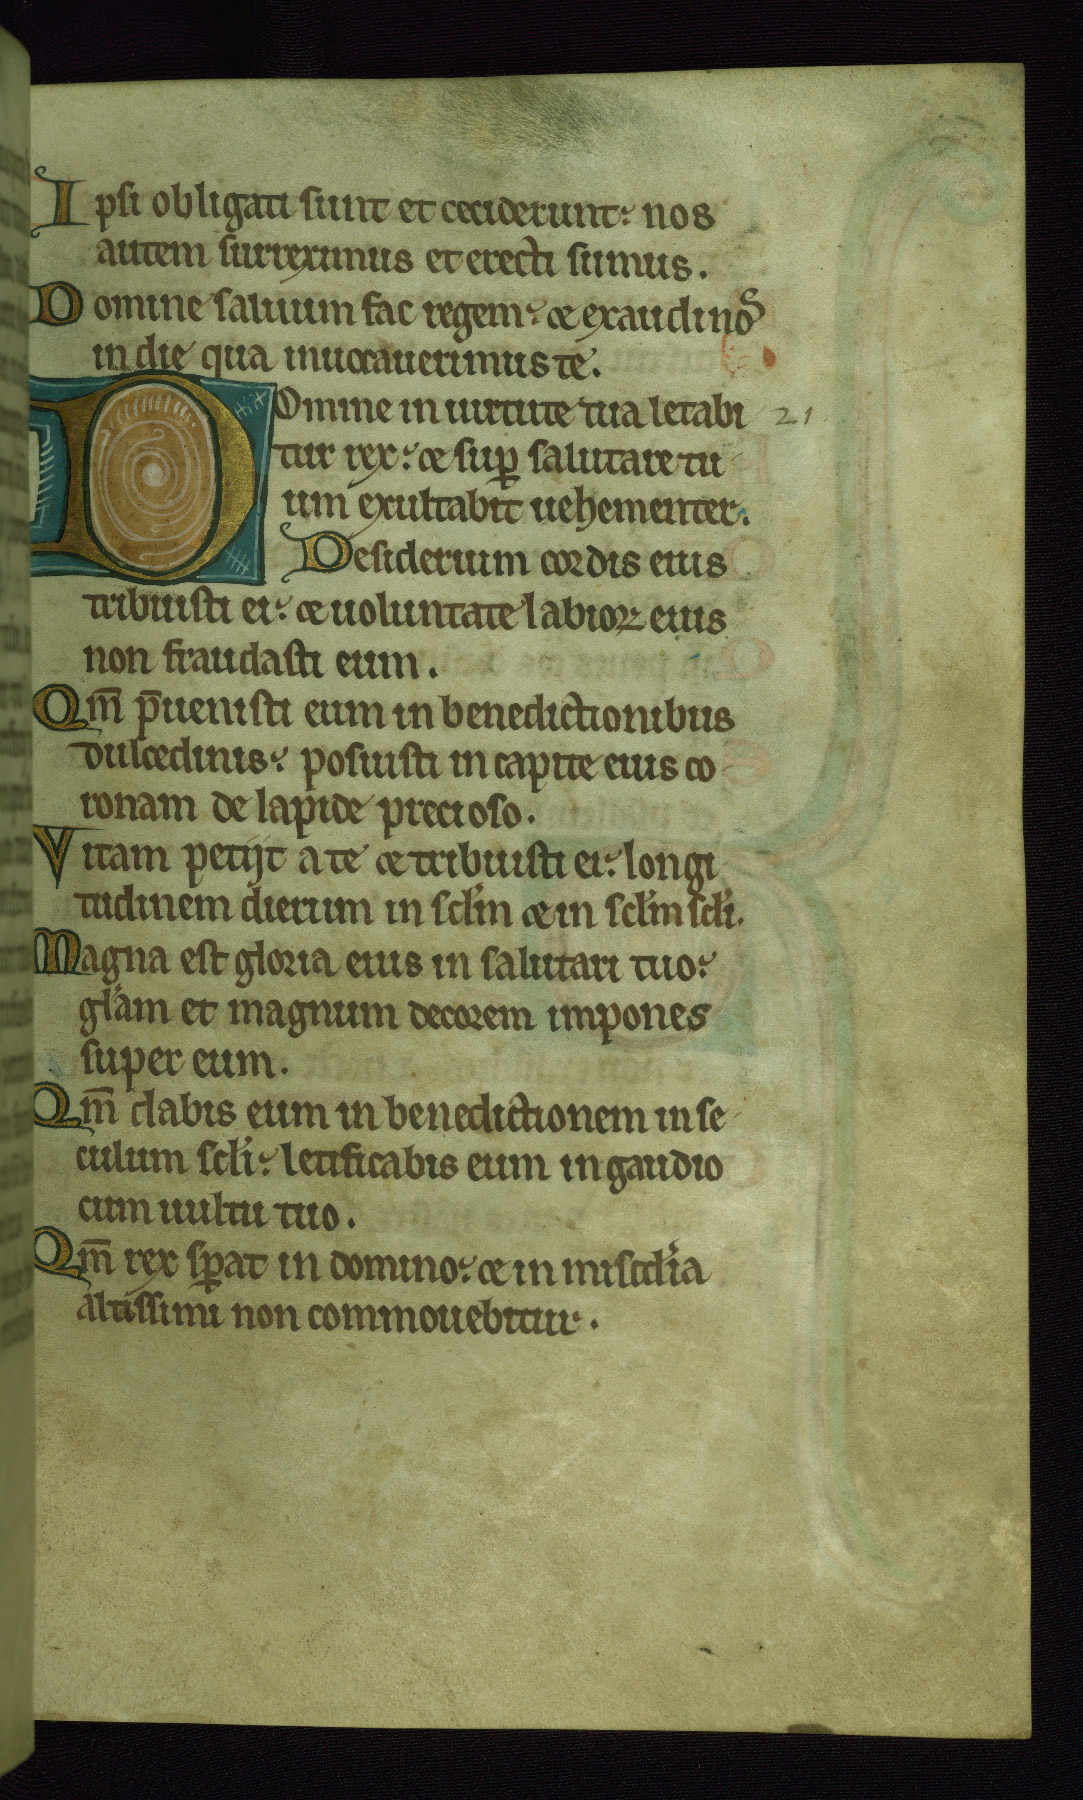 Ipsi obligati sunt et ceciderunt: nos
autem surreximus et erecti sumus.
Domine saluum fac regem: & exaudi noſ
in die qua inuocauerimus te.
DOmine in uirtute tua letabi 21
tur rex: & sup̱ salutare tu
um exultabit uehementer.
Desiderium cordis eius
tribuisti ei: & uoluntate labioꝝ eius
non fraudasti eum.
Qm̄ p̄uenisti eum in benedictionibus
dulcedinis: posuisti in capite eius co
ronam de lapide precioso.
Vitam petijt a te & tribuisti ei: longi
tudinem dierum in sclm̄ & in sclm̄ scli.
Magna est gloria eius in salutari tuo:
glam et magnum decorem impones
super eum.
Qm̄ dabis eum in benedictionem in se
culum scli: letificabis eum in gaudio
cum uultu tuo.
Qm̄ rex sꝑat in domino: & in miscd'ia
altissimi non commouebitur.